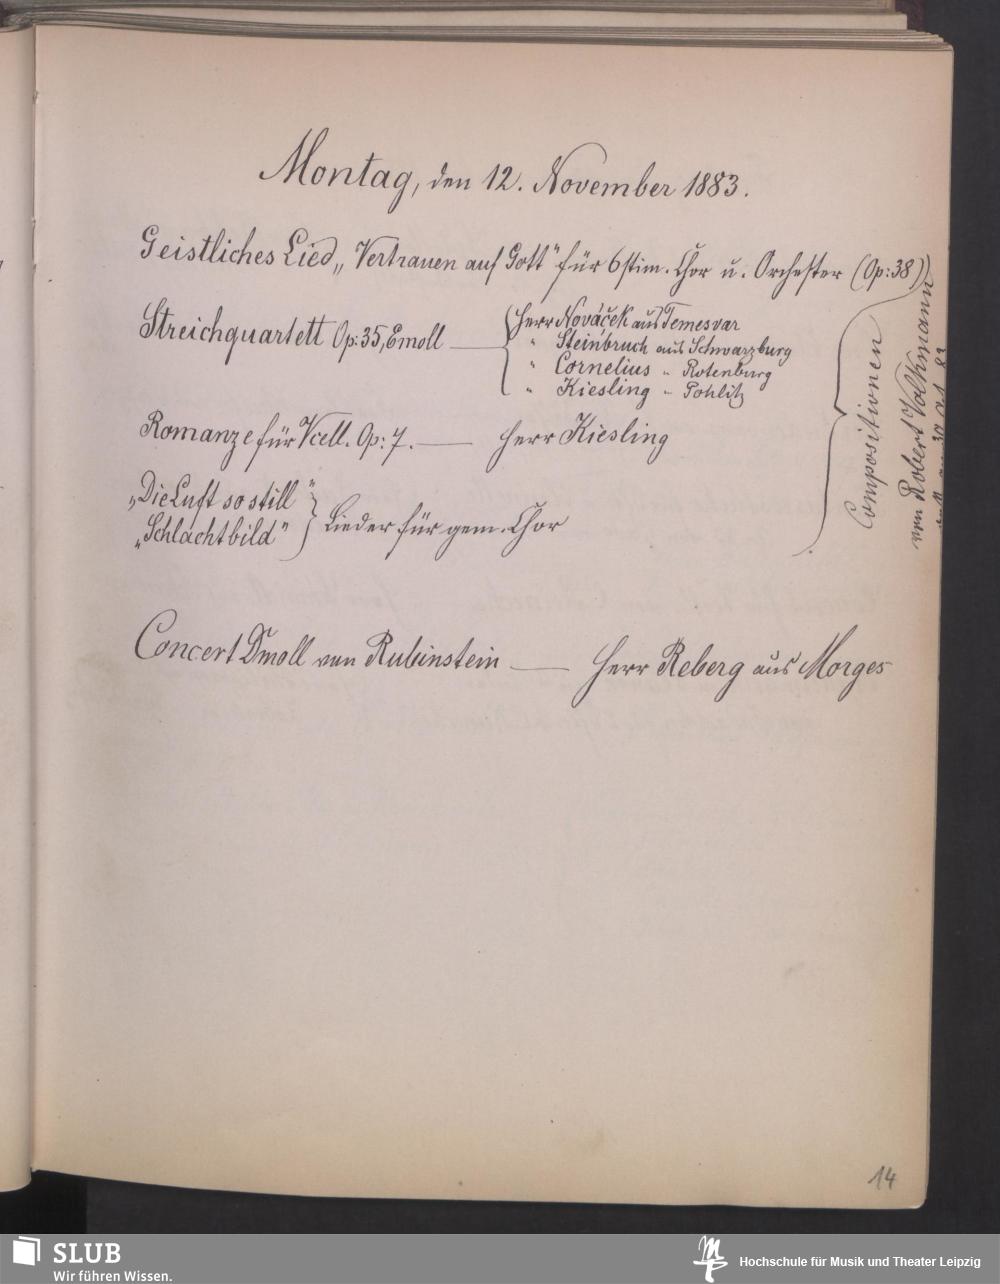 Montag, den 12. November 1883.
Geistliches Lied „Vertrauen auf Gott" für 6stim. Chor u. Orchester (Op: 38)
Streichquartett Op: 35, Emoll —
Herr Nováček aus Temesvar
" Steinbruch aus Schwarzburg
" Cornelius " Rotenburg
" Kiesling " Pohlitz
Romanze für Vcell. Op: 7. — Herr Kiesling
„Die Luft so still"
„Schlachtbild"
Lieder für gem. Chor
Compositionen
von Robert Volkmann
Concert Dmoll von Rubinstein — Herr Reberg aus Morges
14
SLUB
Wir führen Wissen.
Hochschule für Musik und Theater Leipzig